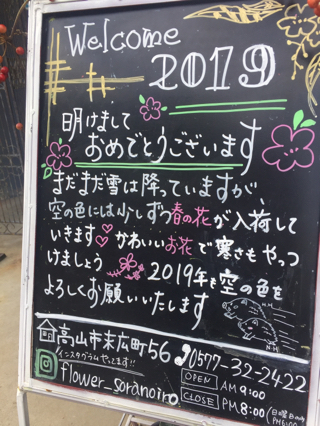 Welcome
2019
明けまして
おめでとうございます
まだまだ雪は降っていますが、
空の色には少しずつ春の花が入荷して
いきます♡ かわいいお花で寒さもやっつ
けましょう 2019年も空の色を
よろしくお願いいたします
N.H. N.H.
高山市末広町56 0577-32-2422
インスタグラムやってます!!
flower_soranoiro
OPEN AM9:00
CLOSE PM8:00(日曜日のみ
PM6:00)